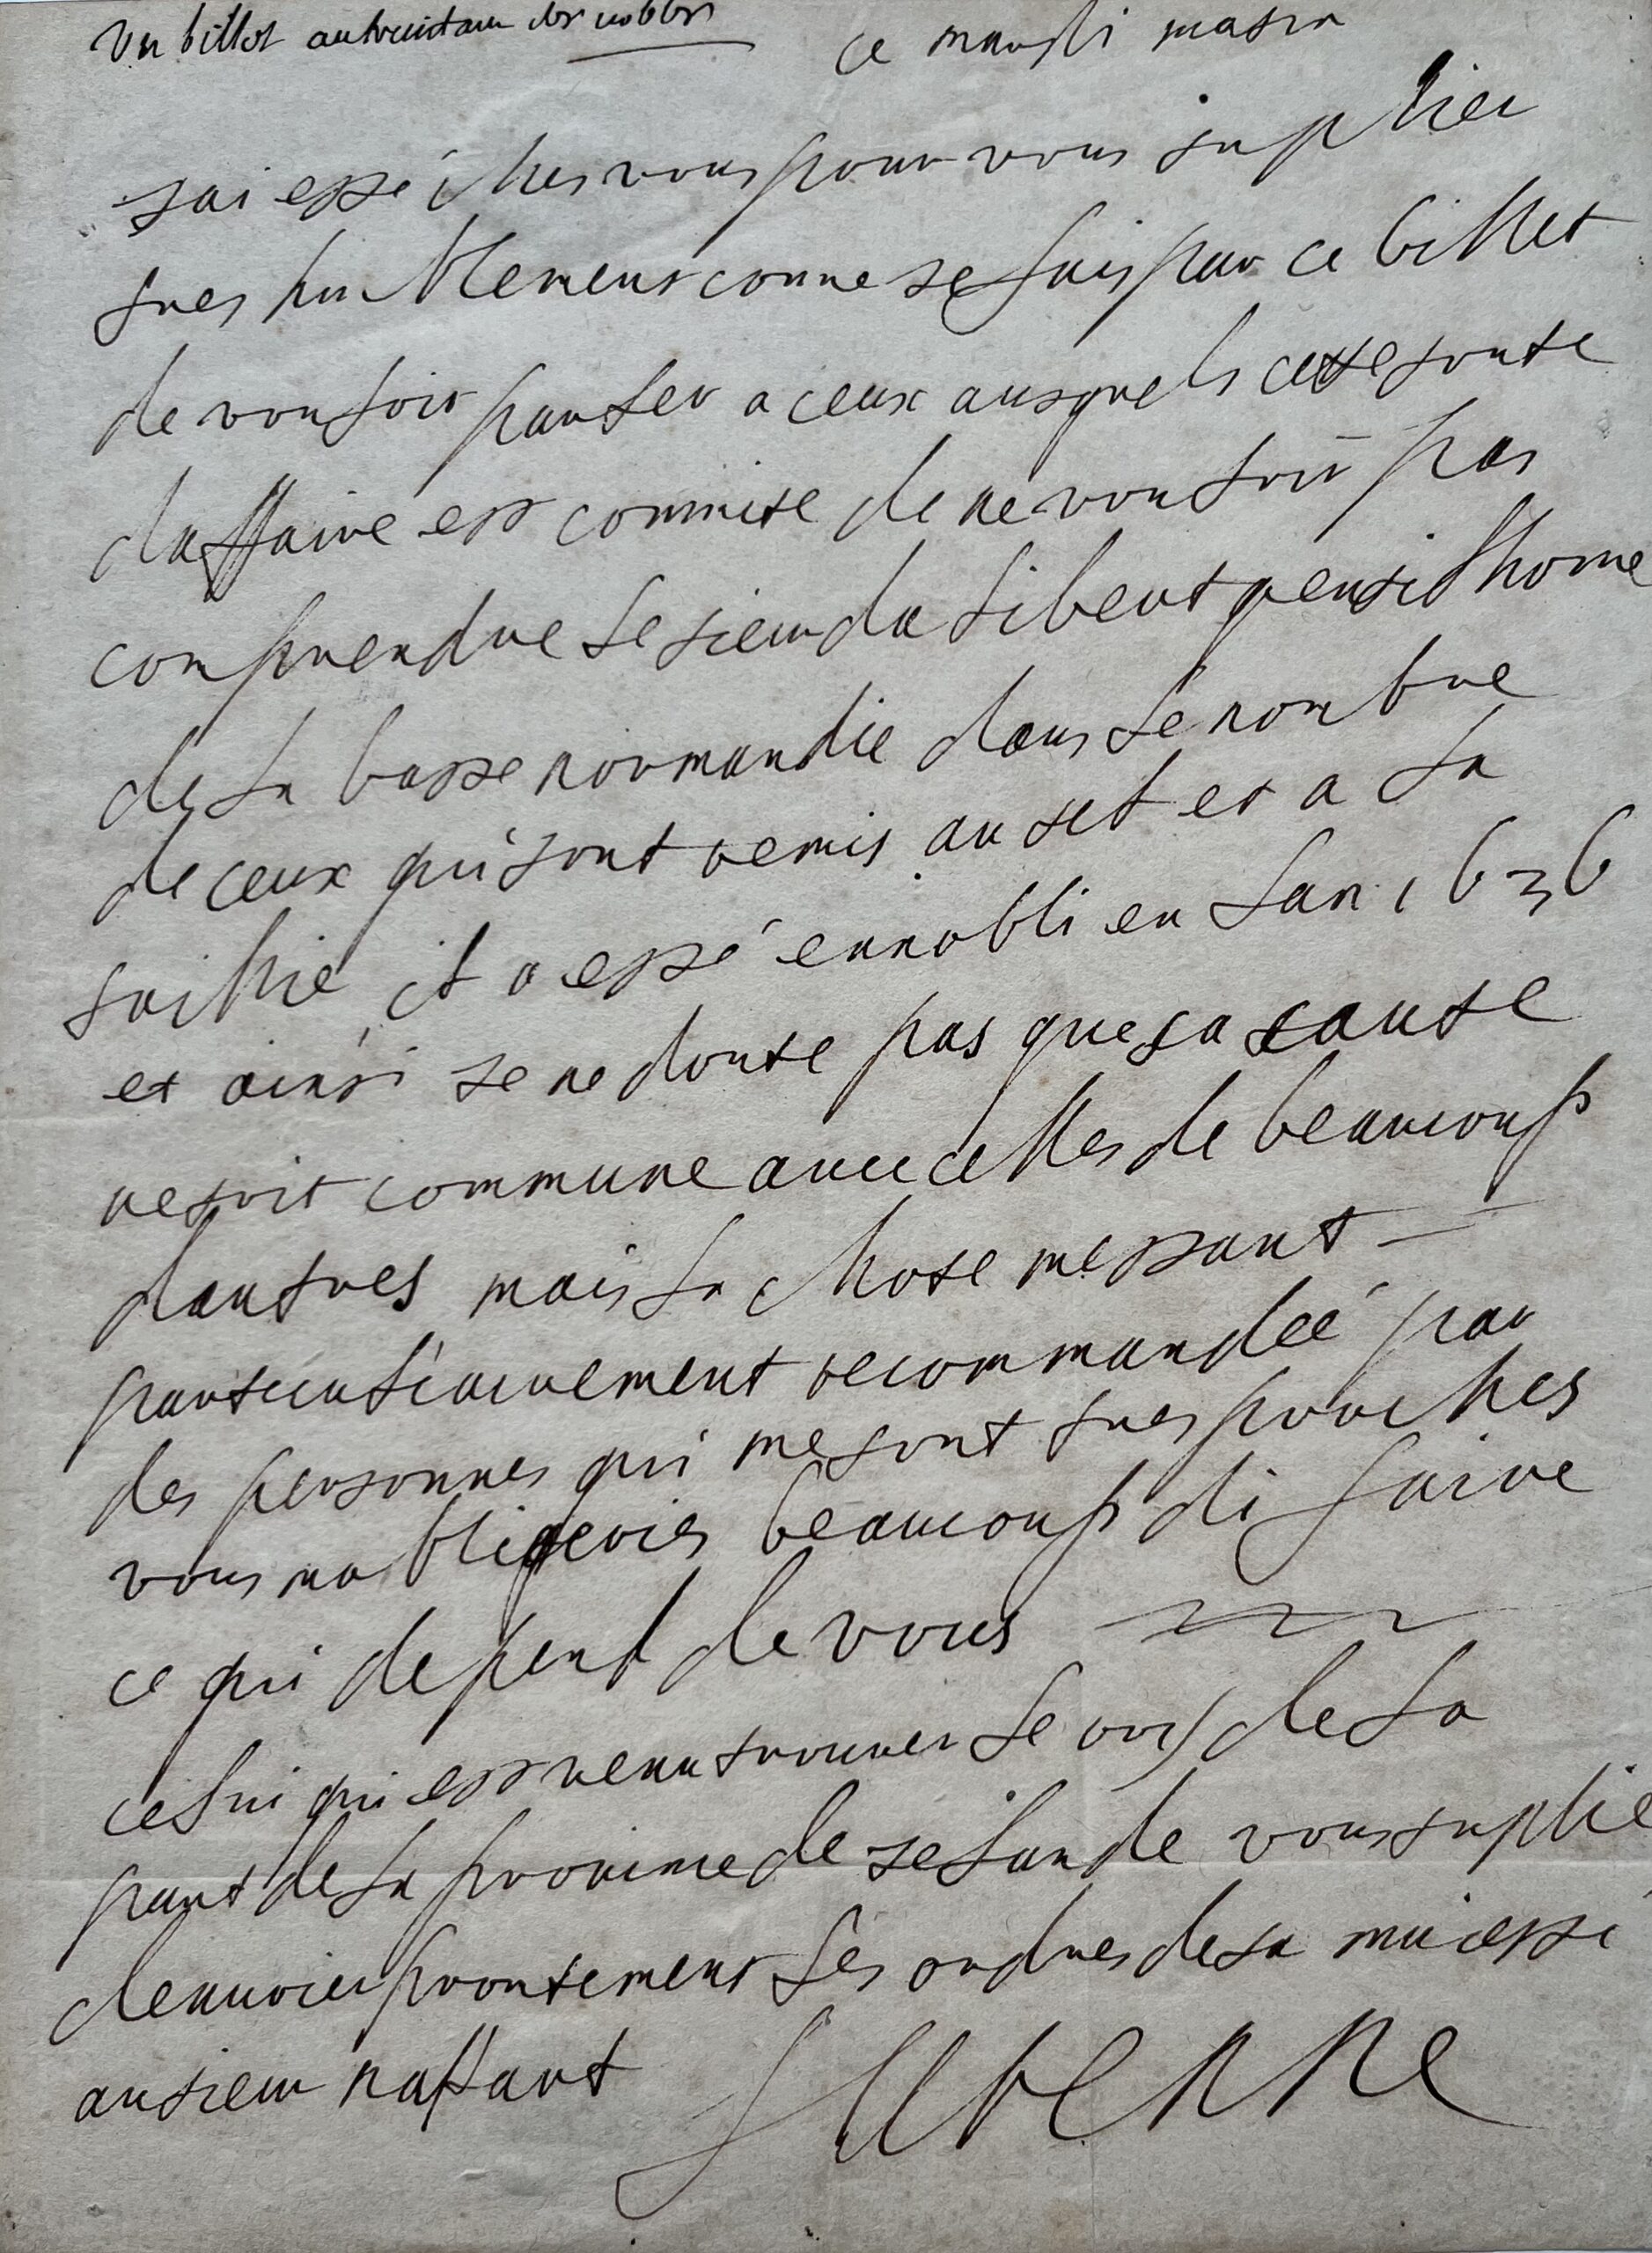 Vn billet au des nobles
ce mardi matin
jai esté ches vous pour vous suplier
tres humblement comme je fais par ce billet
de vouloir parler a ceux ausquels cette sorte
daffaire est commise de ne vouloir pas
comprendre le sieur gentilhome
de la basse normandie dans le nombre
de ceux qui sont remis au sel et a la
taillie il a esté ennobli en lan 1636
et ainsi je ne doute pas que sa cause
ne soit commune auec celles de beaucoup
dautres mais la chose mestant
particulierement recommandée par
des personnes qui me sont tres proches
vous mobligeries beaucoup di faire
ce qui depent de vous
celui qui est venu trouuer le roy de la
part de la prouince de zelande vous suplie
denuoier prontement les ordres de sa maiesté
au sieur
Turenne